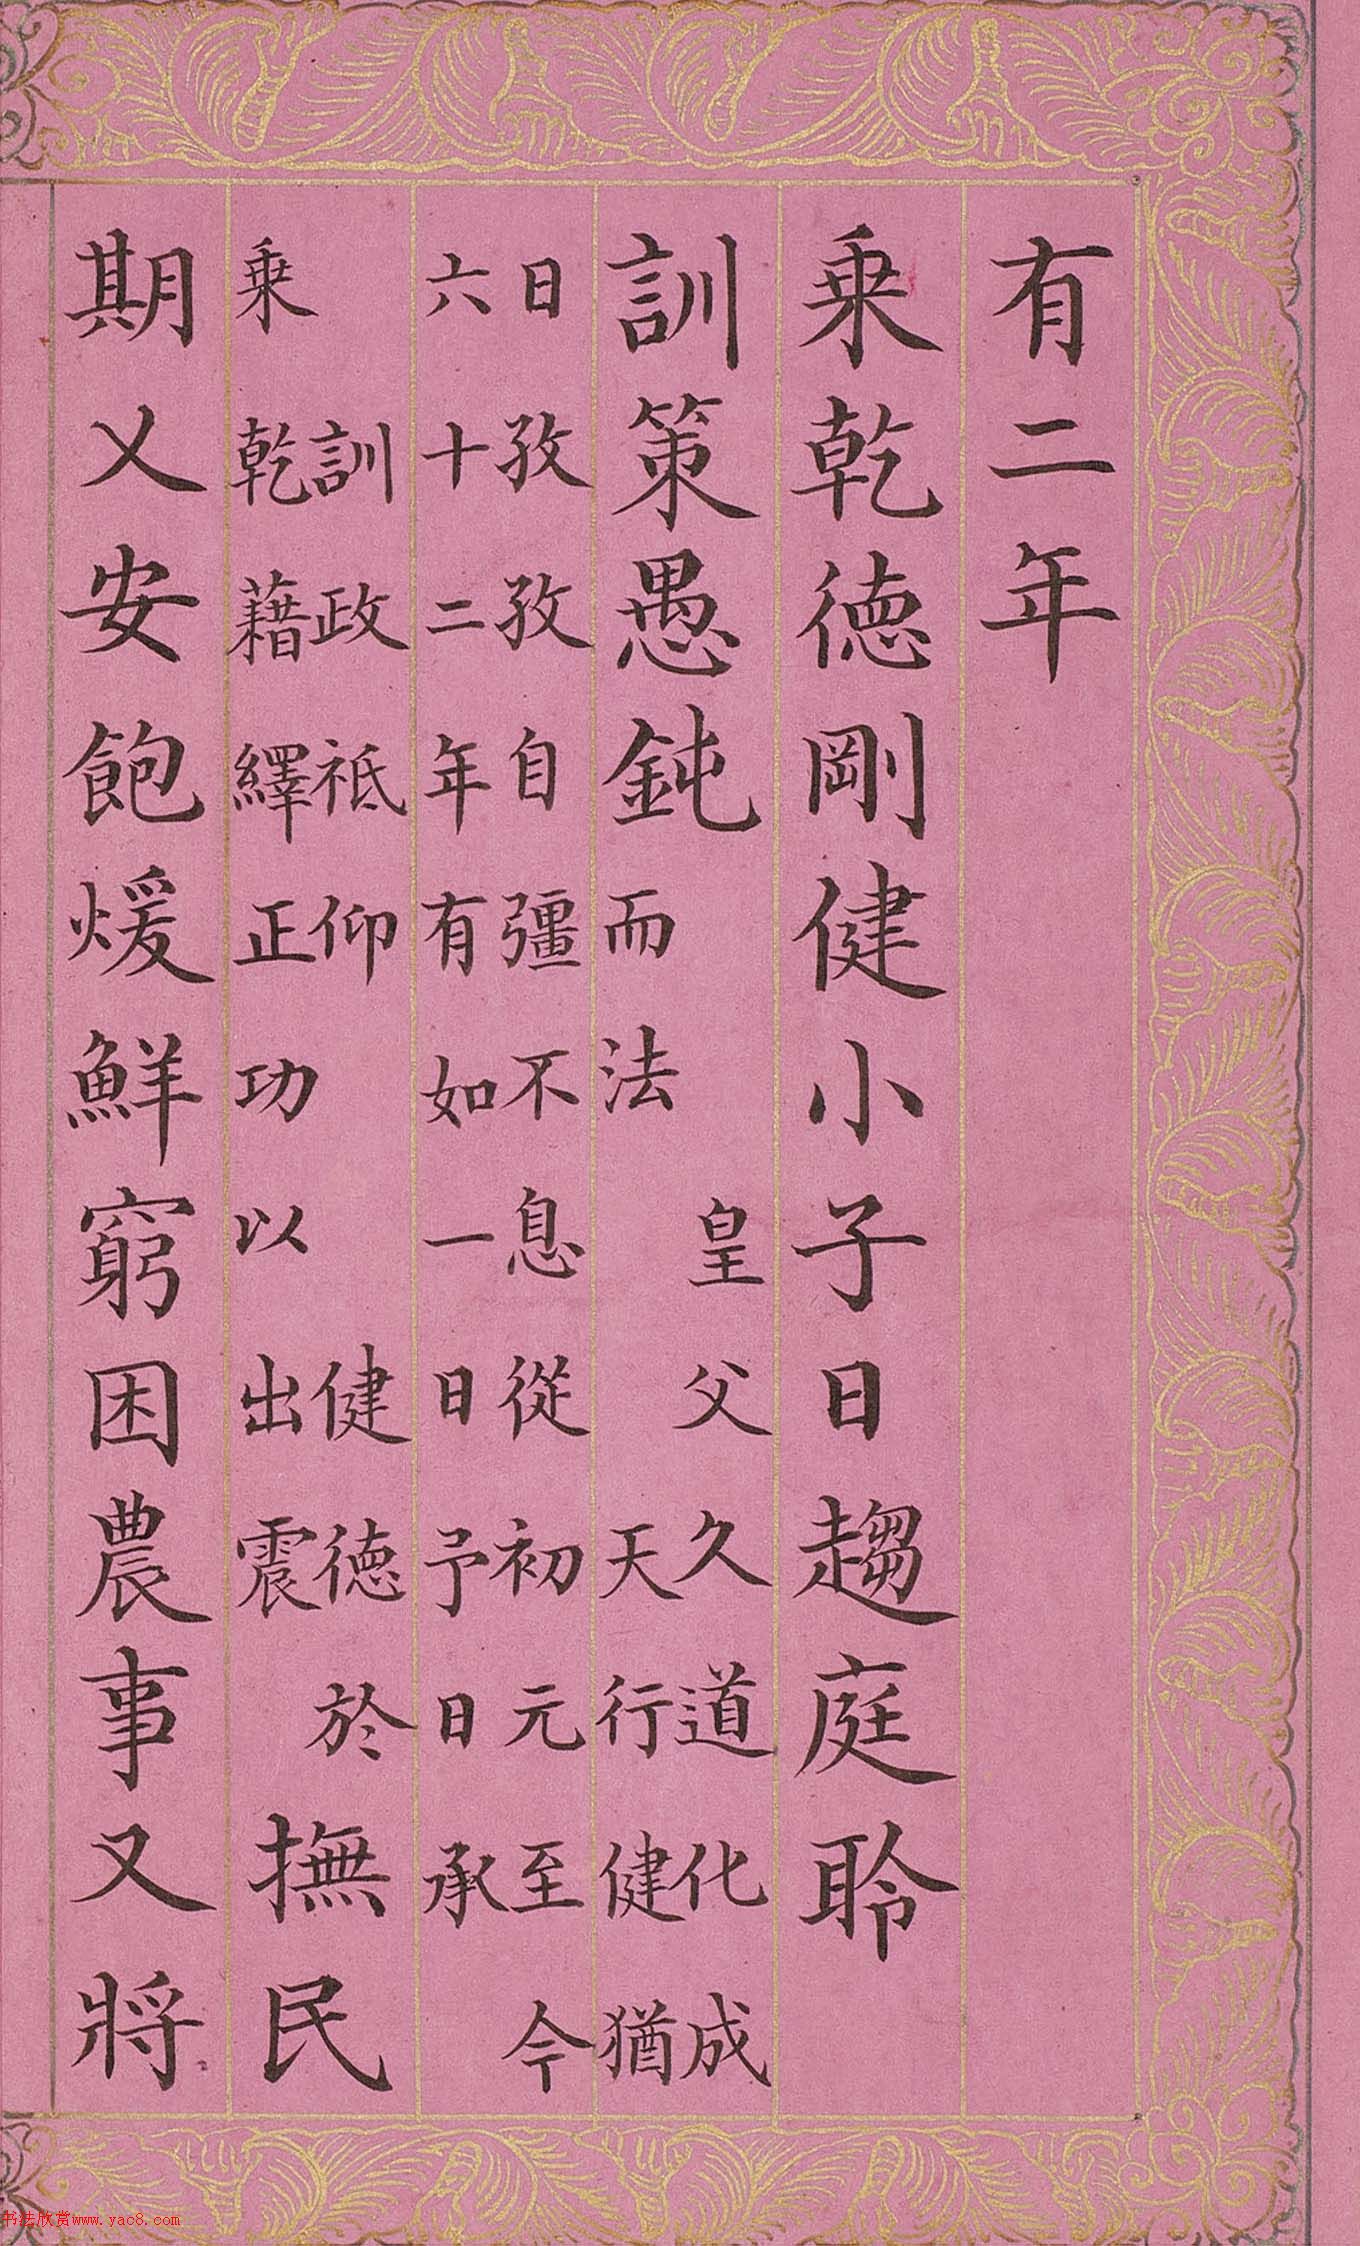 有二年
乗乾德剛健小子日趨庭聆
訓策愚鈍
皇父久道化成
而法天行健猶
日孜孜自彊不息從初元至今
六十二年有如一日予日承
訓政祗仰健德於
乗乾藉繹正功以出震
撫民
期乂安飽煖鮮窮困農事又將
书法欣赏www.yac8.com